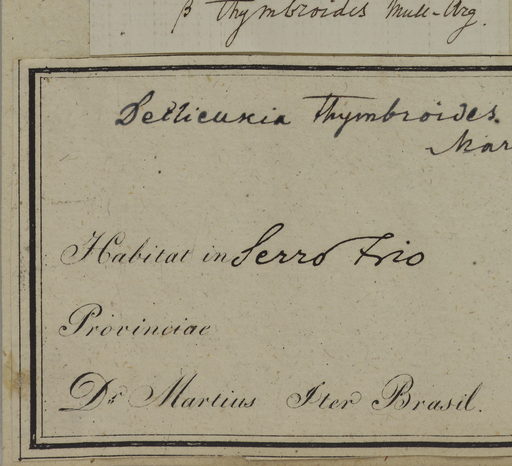 β thymbroides Mull-Arg.
Declieuxia thymbroides.
Mar
Habitat in Serro Frio
Provinciae
Dr. Martius Iter Brasil.